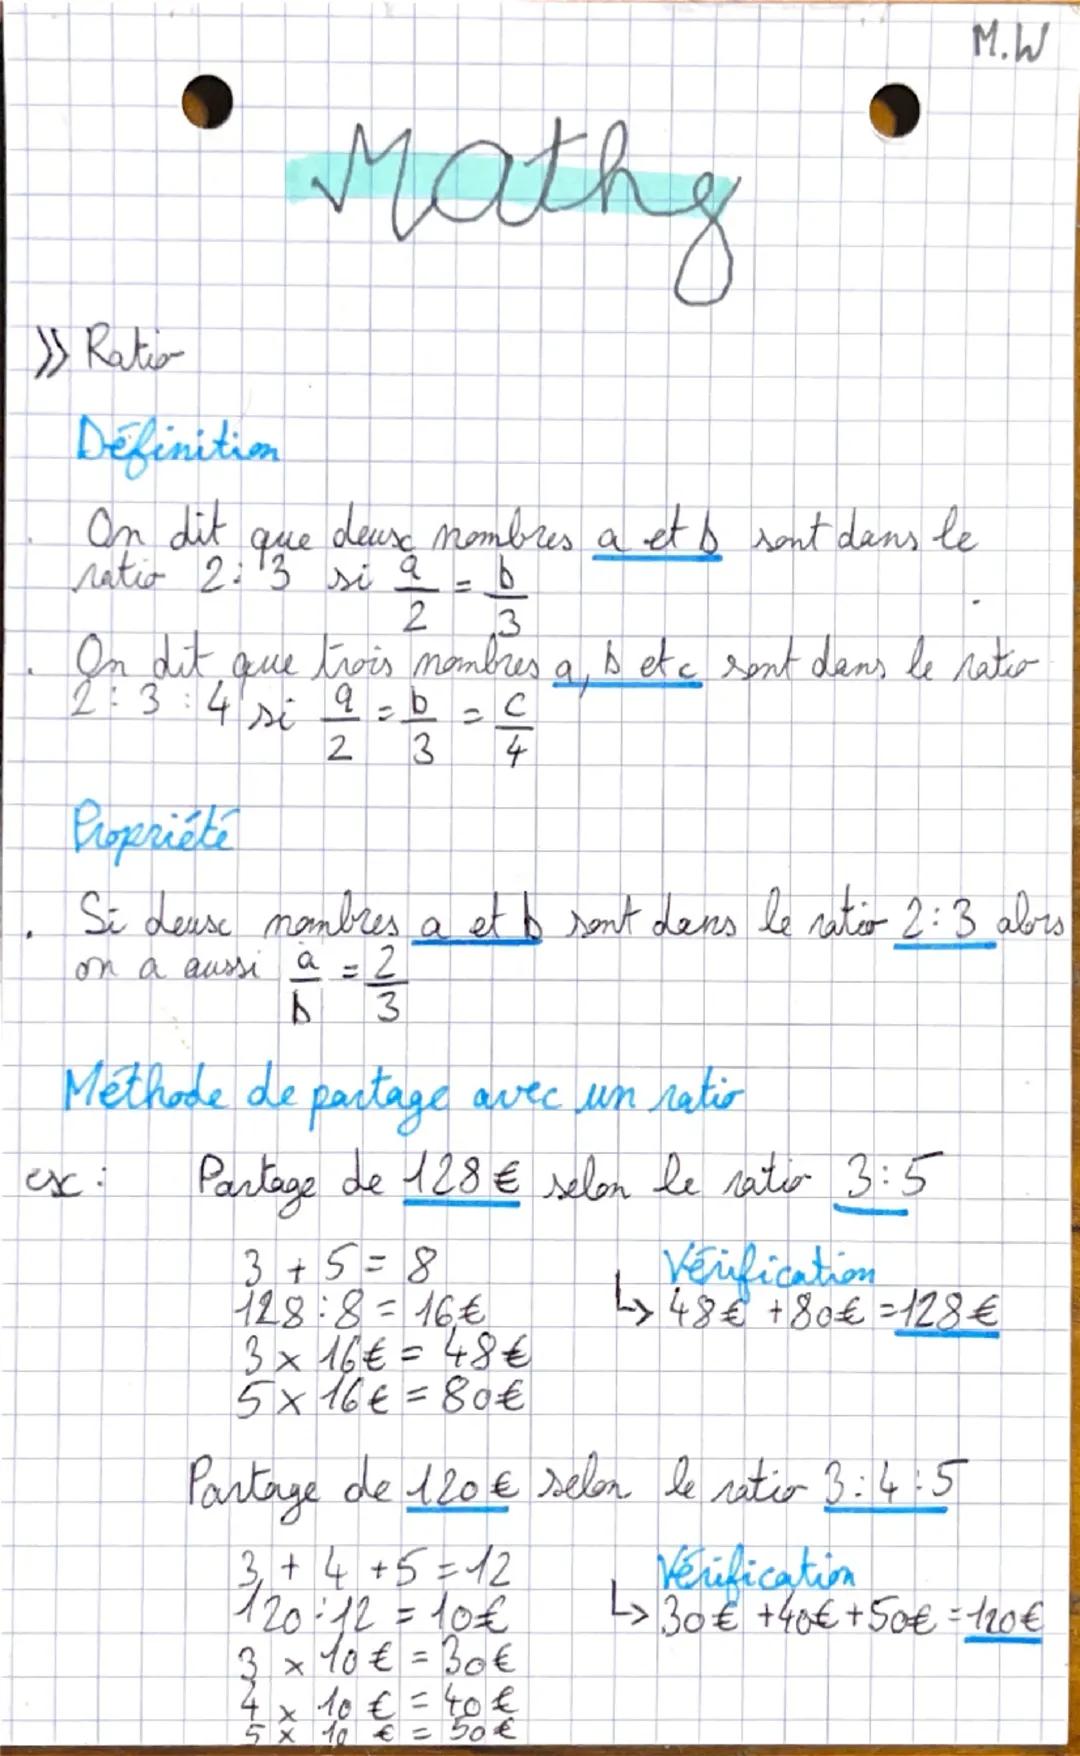 M.W
Maths
>> Ratio
Définition
On dit que deux nombres a et b sont dans le
ratio 2:3 si a/2 = b/3
. On dit que trois nombres a, b et c sont dans le ratio
2:3:4 si a/2 = b/3 = c/4
Propriété
. Si deux nombres a et b sont dans le ratio 2:3 alors
on a aussi a/b = 2/3
Méthode de partage avec un ratio
ex : Partage de 128 € selon le ratio 3:5
3 + 5 = 8
128 : 8 = 16€
3 x 16€ = 48€
5 x 16€ = 80€
Vérification
↳ 48€ + 80€ = 128€
Partage de 120€ selon le ratio 3:4:5
3 + 4 + 5 = 12
120 : 12 = 10€
3 x 10€ = 30€
4 x 10€ = 40€
5 x 10€ = 50€
Vérification
↳ 30€ + 40€ + 50€ = 120€